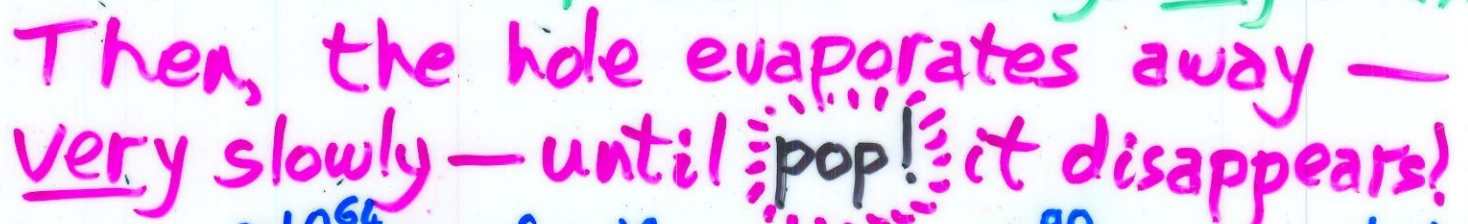 Then, the hole evaporates away —
very slowly — until pop! it disappears!